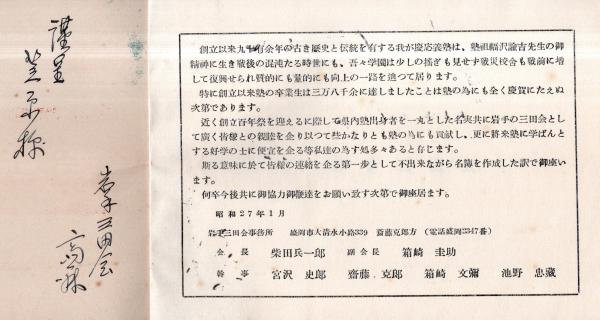 謹呈
岩手三田会
創立以来九十有余年の古き歴史と伝統を有する我が慶応義塾は、塾祖福沢諭吉先生の御
精神に生き戦後の混沌たる時世にも、吾々学園は少しの揺ぎも見せず戦災校舎も戦前に増
して復興せられ質的にも量的にも向上の一路を辿つて居ります。
特に創立以来塾の卒業生は三万八千余に達しましたことは塾の為にも全く慶賀にたえぬ
次第であります。
近く創立百年祭を迎えるに際して県内塾出身者を一丸とした名実共に岩手の三田会とし
て広く皆様との親睦を企り以つて些かなりとも塾の為にも貢献し、更に将来塾に学ばんと
する好学の士に便宜を企る等私達の為す処多々あると存じます。
斯る意味に於て皆様の連絡を企る第一歩として不出来ながら名簿を作成した訳で御座い
ます。
何卒今後共に御協力御鞭達をお願い致す次第で御座居ます。
昭和27年1月
岩手三田会事務所 盛岡市大清水小路339 斎藤克郎方 (電話盛岡2347番)
会長 柴田兵一郎 副会長 箱崎圭助
幹事 宮沢史郎 齋藤克郎 箱崎文彌 池野忠藏